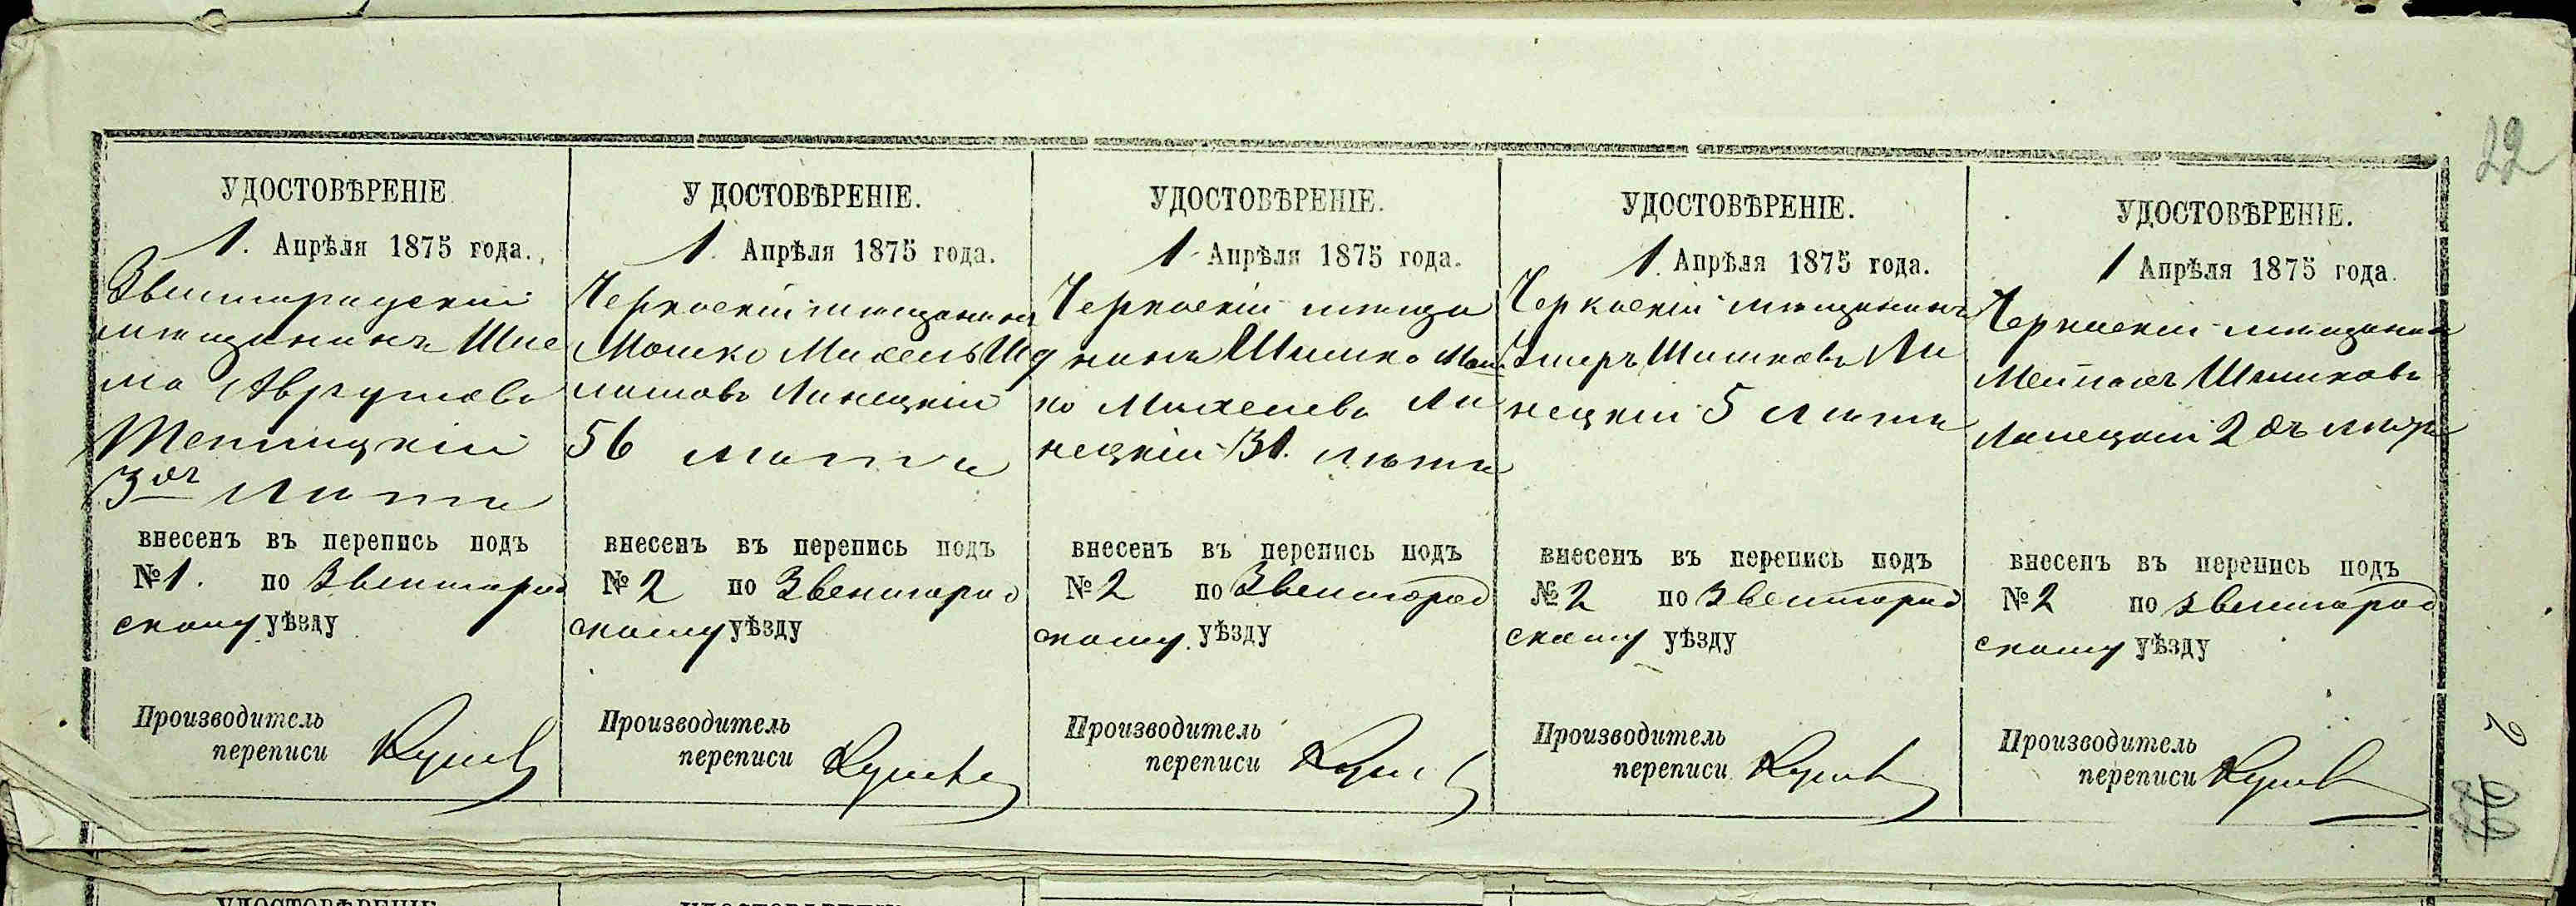 22
УДОСТОВѢРЕНІЕ
1. Апрѣля 1875 года.
Звенигородскій
мѣщанинъ
3хъ лѣтъ
внесенъ въ перепись подъ
№ 1. по Звенигород
скому уѣзду
Производитель
переписи
УДОСТОВѢРЕНІЕ.
1. Апрѣля 1875 года.
Черкаскій мѣщанинъ
Мошко Михель Ш
Линецкій
56 лѣтъ
внесенъ въ перепись подъ
№ 2 по Звенигород
скому уѣзду
Производитель
переписи
УДОСТОВѢРЕНІЕ.
1 Апрѣля 1875 года.
Черкаскій мѣща
нинъ Шимко Мош
ко Михелевъ Ли
нецкій 31. лѣтъ
внесенъ въ перепись подъ
№ 2 по Звенигород
скому уѣзду
Производитель
переписи
УДОСТОВѢРЕНІЕ.
1. Апрѣля 1875 года.
Черкаскій мѣщанинъ
Шимковъ Ли
нецкій 5 лѣтъ
внесенъ въ перепись подъ
№ 2 по Звенигород
скому уѣзду
Производитель
переписи
УДОСТОВѢРЕНІЕ.
1 Апрѣля 1875 года.
Черкаскій мѣщанин
Шимковъ
Линецкій 2хъ лѣтъ
внесенъ въ перепись подъ
№ 2 по Звенигород
скому уѣзду
Производитель
переписи